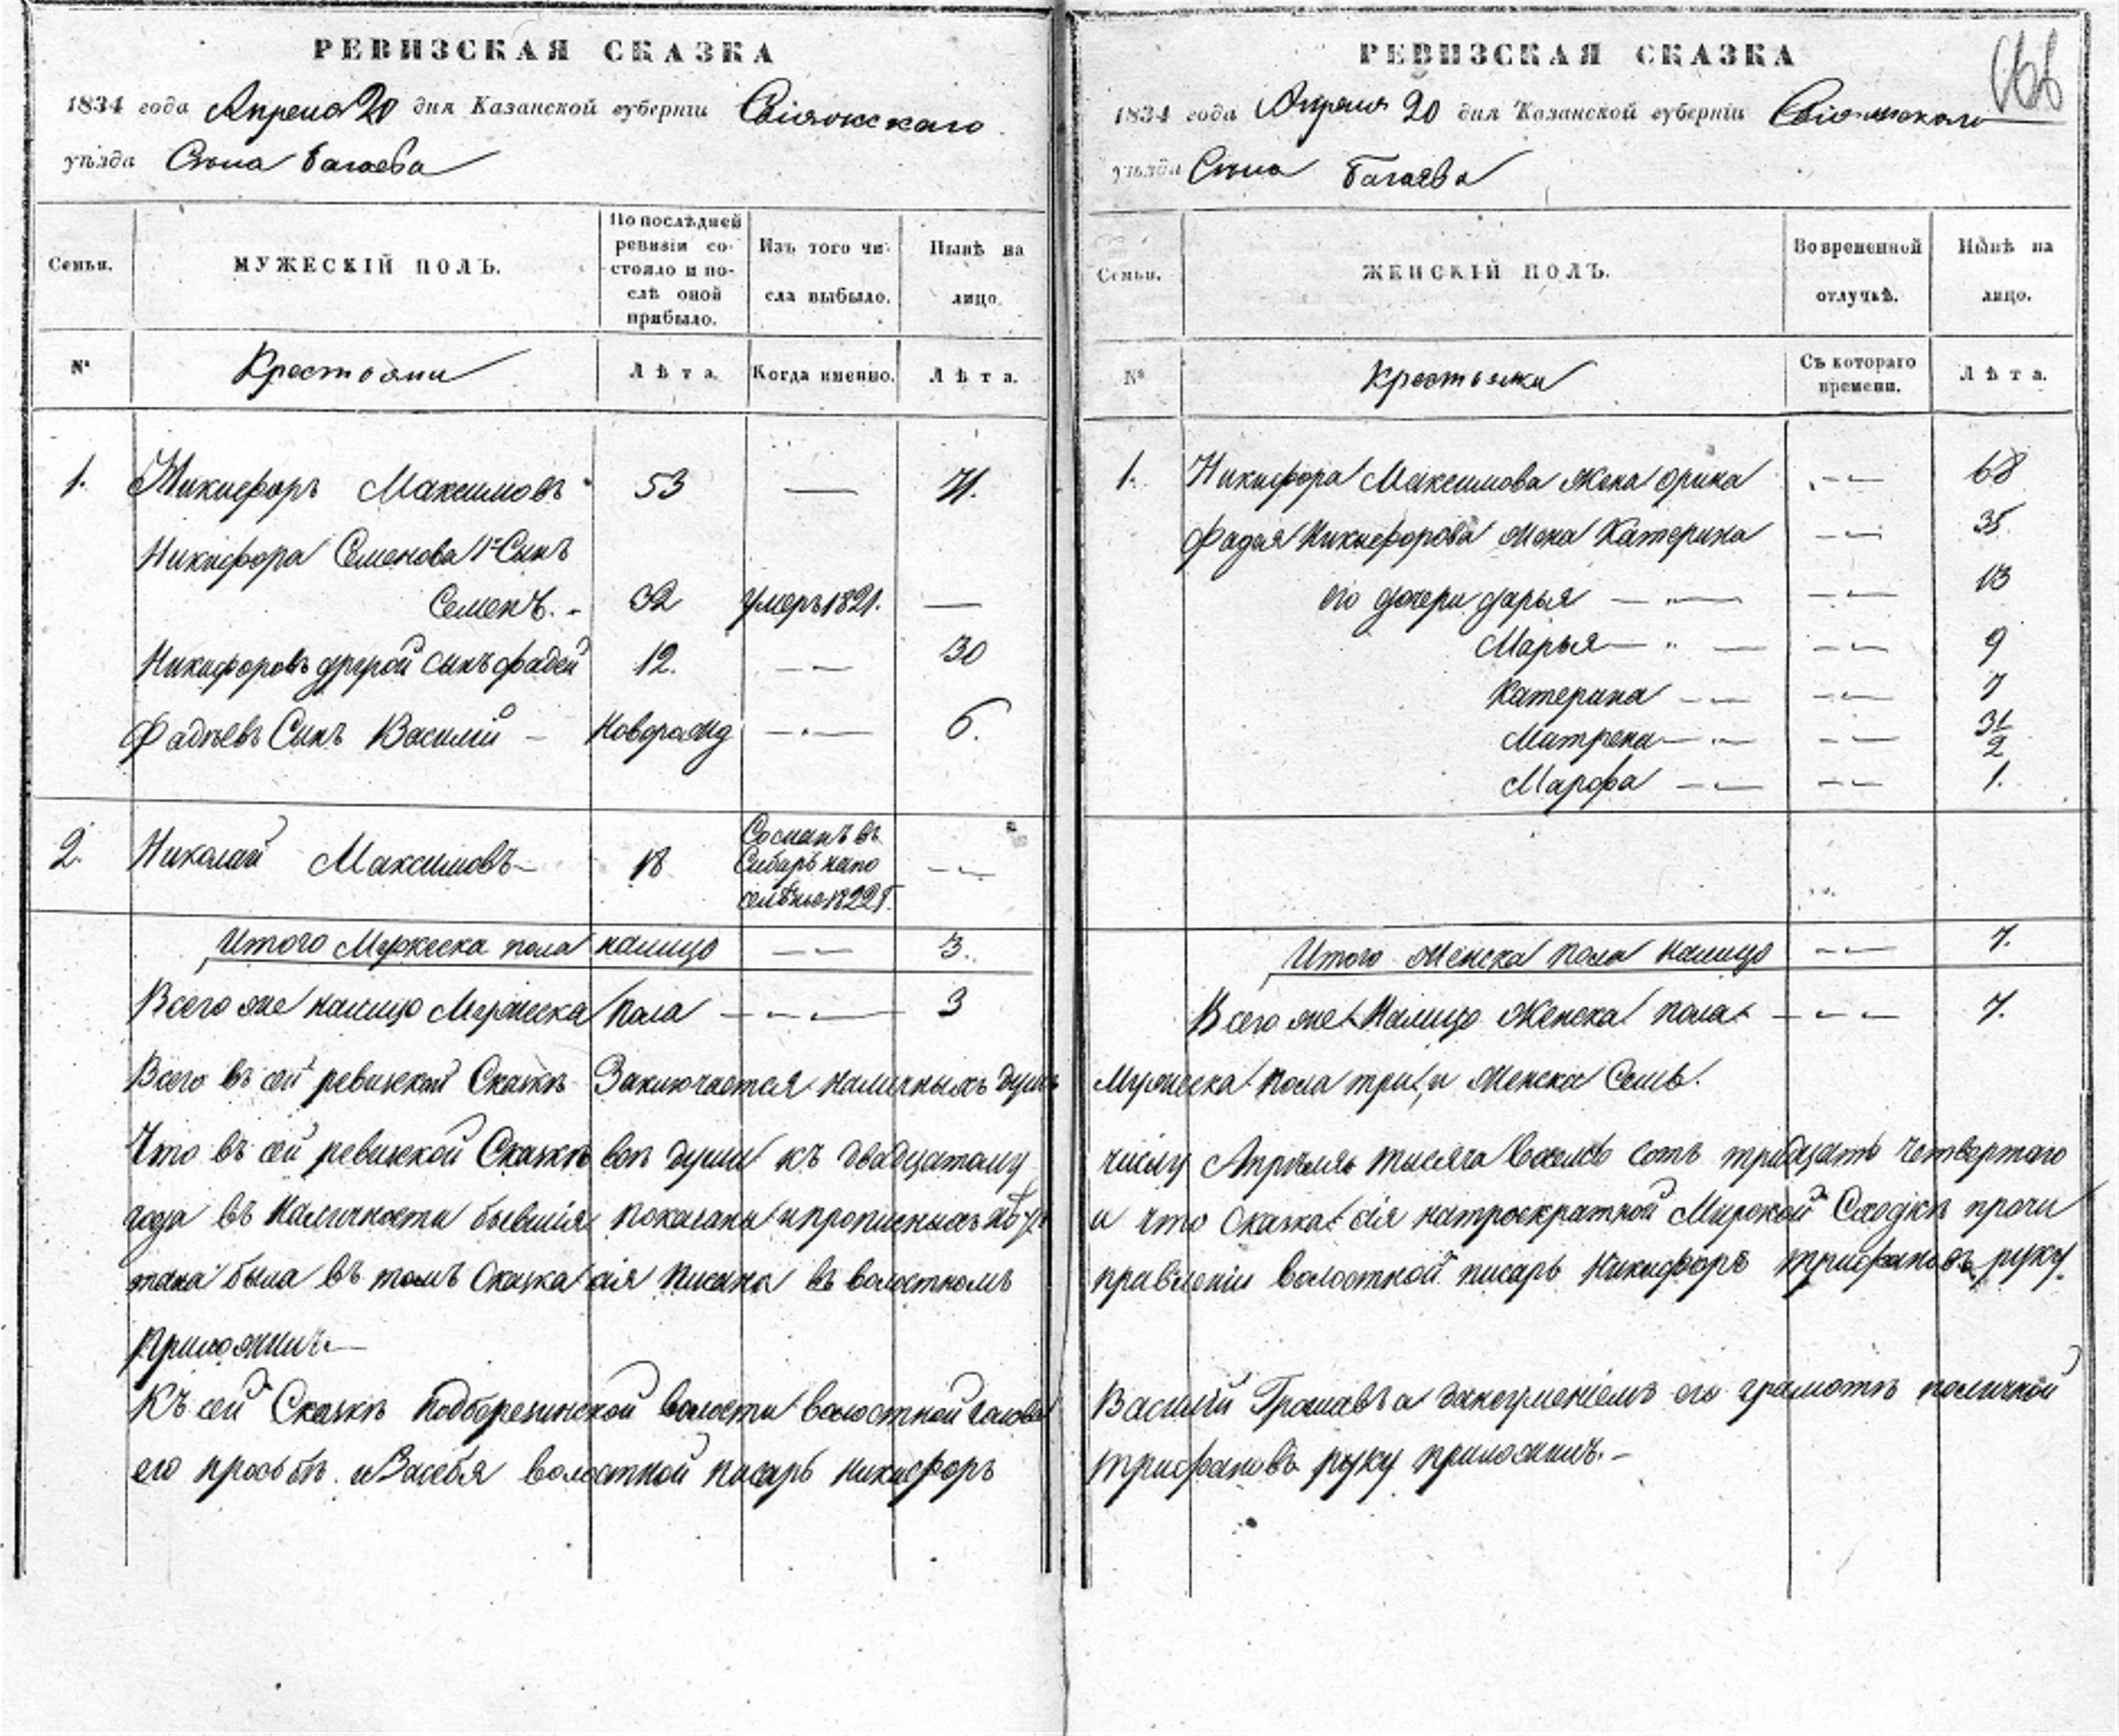 РЕВИЗСКАЯ СКАЗКА
1834 года Апреля 20 дня Казанской губерніи Свіяжскаго
уѣзда Села Багаева
Семьи.
МУЖЕСКІЙ ПОЛЪ.
По послѣдней ревизіи состояло и послѣ оной прибыло.
Изъ того числа выбыло.
Нынѣ на лицо.
№
Крестьяни
Лѣта.
Когда именно.
Лѣта.
1. Никифоръ Максимовъ 53 — 71.
Никифора Семенова 1й Сынъ
Семенъ. 32 умеръ 1821. —
Никифоровъ другой сынъ Фадей 12. — 30
Фадѣевъ Сынъ Василій — Новорожд — 6.
2. Николай Максимовъ 18 Сосланъ въ Сибирь на поселѣніе 1822 г. —
Итого Мужеска пола налицо — 3.
Всего же налицо Мужеска пола — 3
Всего въ сей ревизской Сказкѣ Заключается наличныхъ душъ
Что въ сей ревизской Сказкѣ всѣ души къ двадцатому
года въ Наличности бывшія показаны и прописныхъ нѣтъ
тана была въ томъ Сказка сія писана въ волостномъ
Приложилъ.—
Къ сей Сказкѣ Подберезинской волости волостной голова
его прозьбѣ и Засебя волостной писарь Никифоръ
РЕВИЗСКАЯ СКАЗКА
1834 года Апреля 20 дня Казанской губерніи Свіяжскаго
уѣзда Села Багаева
Семьи.
ЖЕНСКІЙ ПОЛЪ.
Во временной отлучкѣ.
Нынѣ на лицо.
№
Крестьянки
Съ котораго времени.
Лѣта.
1. Никифора Максимова Жена Орина — 68
Фадея Никифорова Жена Катерина — 35
его дочери Дарья — 13
Марья — 9
Катерина — 7
Матрена — 3 1/2
Марфа — 1.
Итого Женска пола налицо — 7.
Всего же Налицо Женска пола — 7.
Мужеска пола три, и Женска Семь.
числу Апрѣля тысяча восемь сотъ тридцать четвертаго
и что Сказка сія натроекратной Мирской Сходкѣ прочи
правленіи волостной писарь Никифоръ Трифановъ руку
Василій а занеумѣніемъ его грамотѣ поличной
Трифановъ руку приложилъ.—